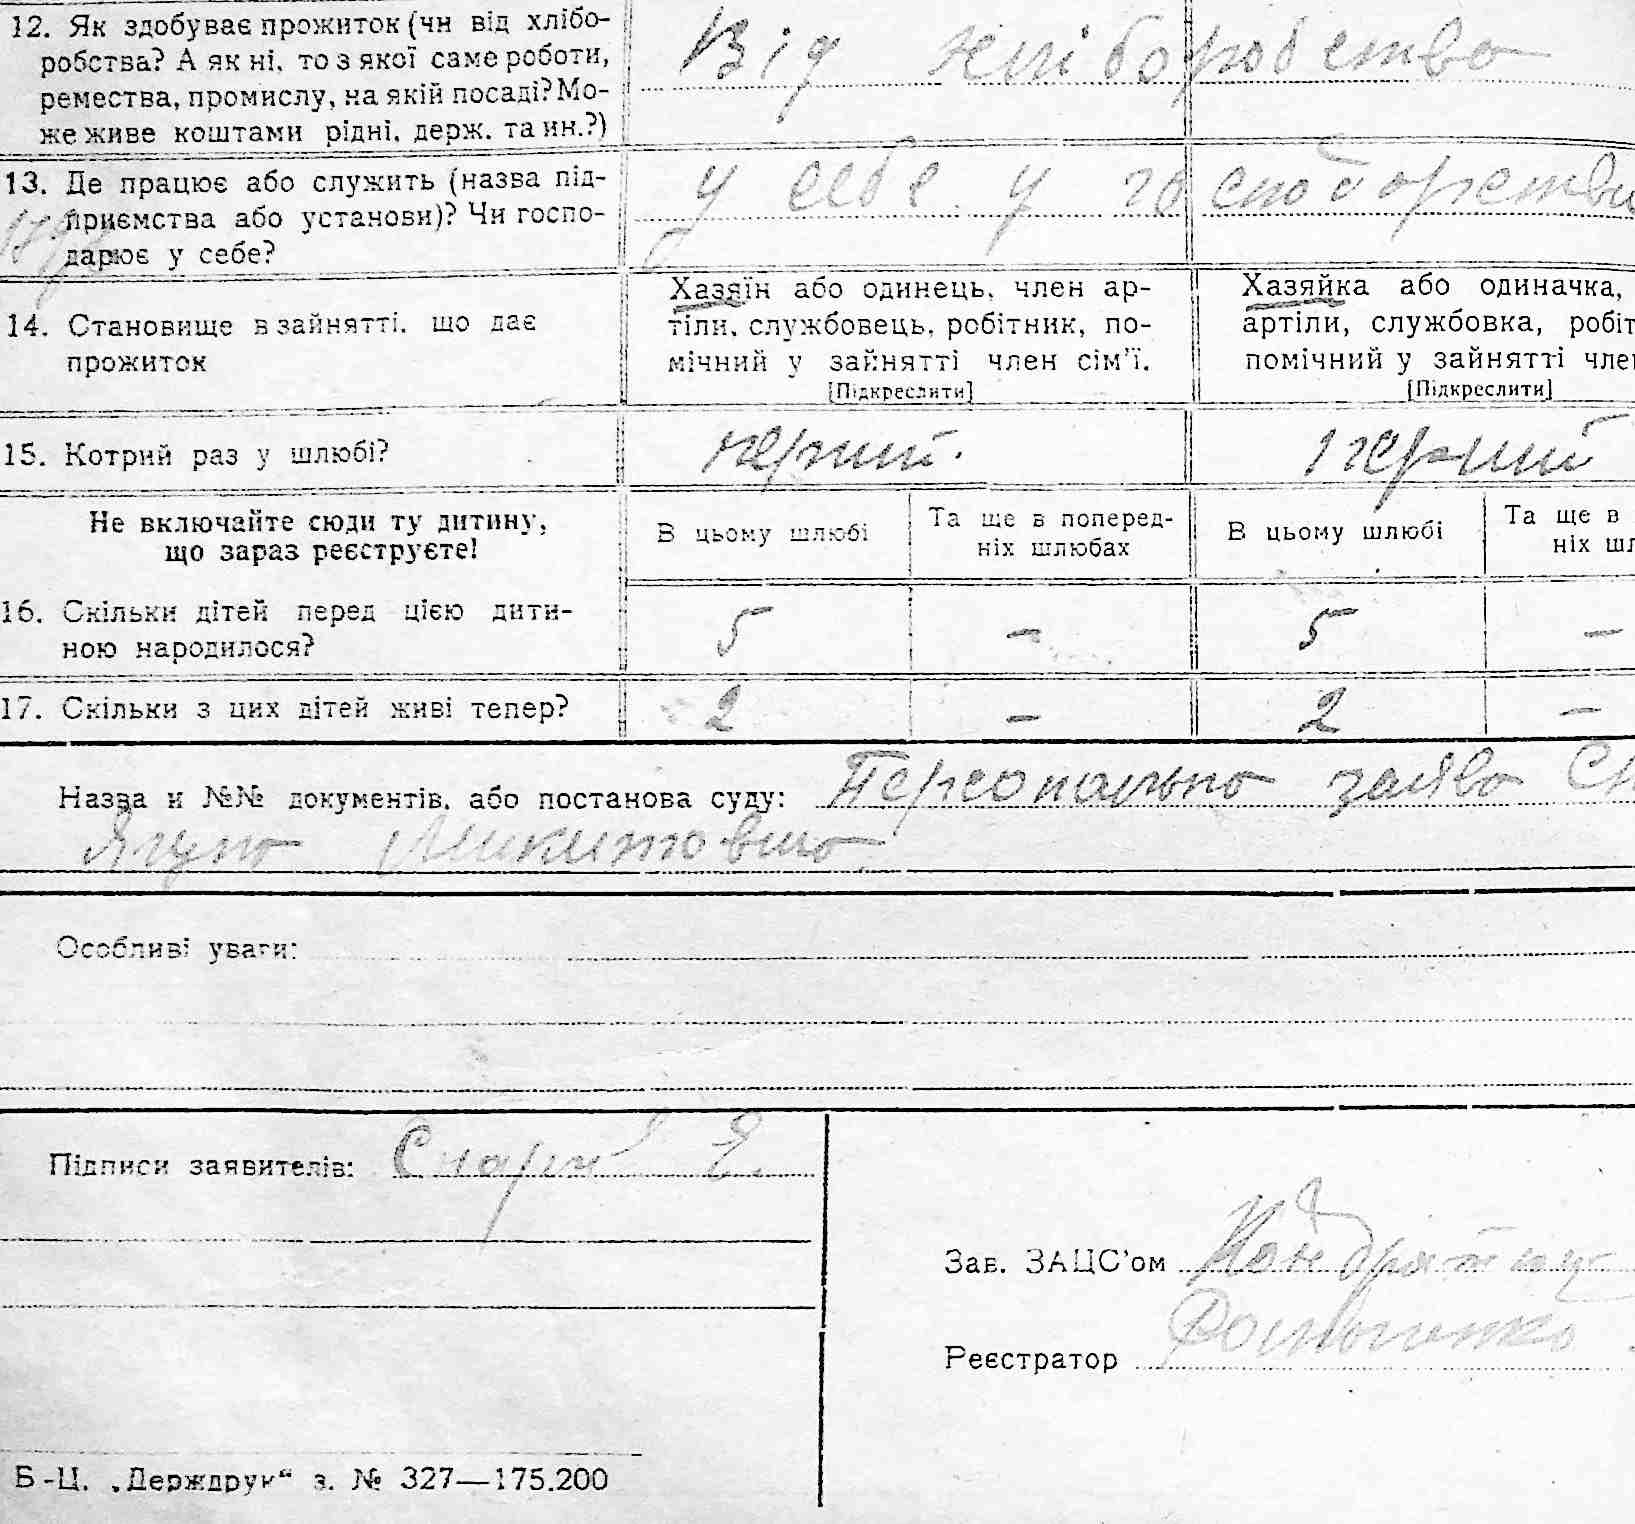 12. Як здобуває прожиток (чи від хлібо-
робства? А як ні, то з якої саме роботи,
ремества, промислу, на якій посаді? Мо-
же живе коштами рідні, держ. та ин.?)
Від хліборобства
13. Де працює або служить (назва під-
приємства або установи)? Чи госпо-
дарює у себе?
у себе у господарстві
14. Становище в зайнятті, що дає
прожиток
Хазяїн або одинець, член ар-
тіли, службовець, робітник, по-
мічний у зайнятті член сім'ї.
[Підкреслити]
Хазяйка або одиначка,
артіли, службовка, робіт
помічний у зайнятті член
[Підкреслити]
15. Котрий раз у шлюбі?
перший. перший
Не включайте сюди ту дитину,
що зараз реєструєте!
В цьому шлюбі
Та ще в поперед-
ніх шлюбах
В цьому шлюбі
Та ще в
ніх шл
16. Скільки дітей перед цією дити-
ною народилося?
5 – 5 –
17. Скільки з цих дітей живі тепер? 2 – 2 –
Назва и №№ документів, або постанова суду: Персонально заява
Микитовича
Особливі уваги:
Підписи заявителів:
Зав. ЗАЦС'ом
Реєстратор
Б-Ц. „Держдрук“ з. № 327—175.200